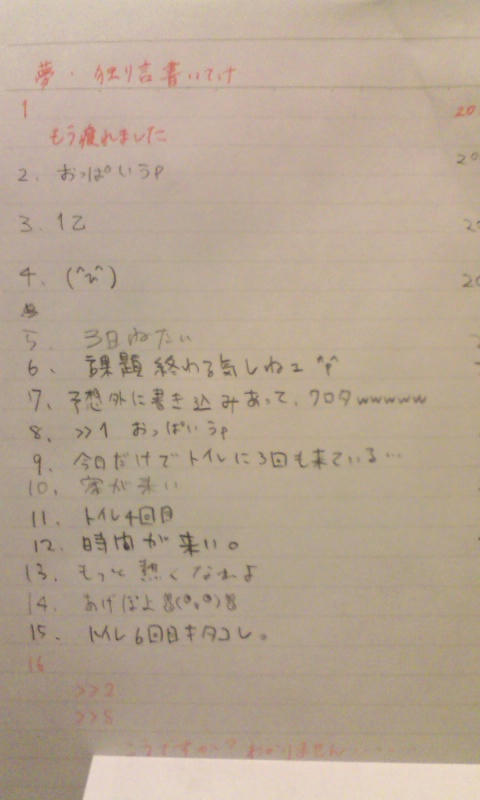 夢・独り言書いてけ
1
もう疲れました
2. おっぱいうp
3. 1乙
4. (^ν^)
5. 3日ねたい
6. 課題終わる気しねェ ^p^
7. 予想外に書き込みあって、クロタwwwww
8. >>1 おっぱいうp
9. 今日だけでトイレに3回も来ている…
10. 客が来い
11. トイレ4回目
12. 時間が来い。
13. もっと熱くなれよ
14. あげぽよ
15. トイレ6回目キタコレ。
16
>>2
>>8
こうですか?わかりません……
20
20
20
20